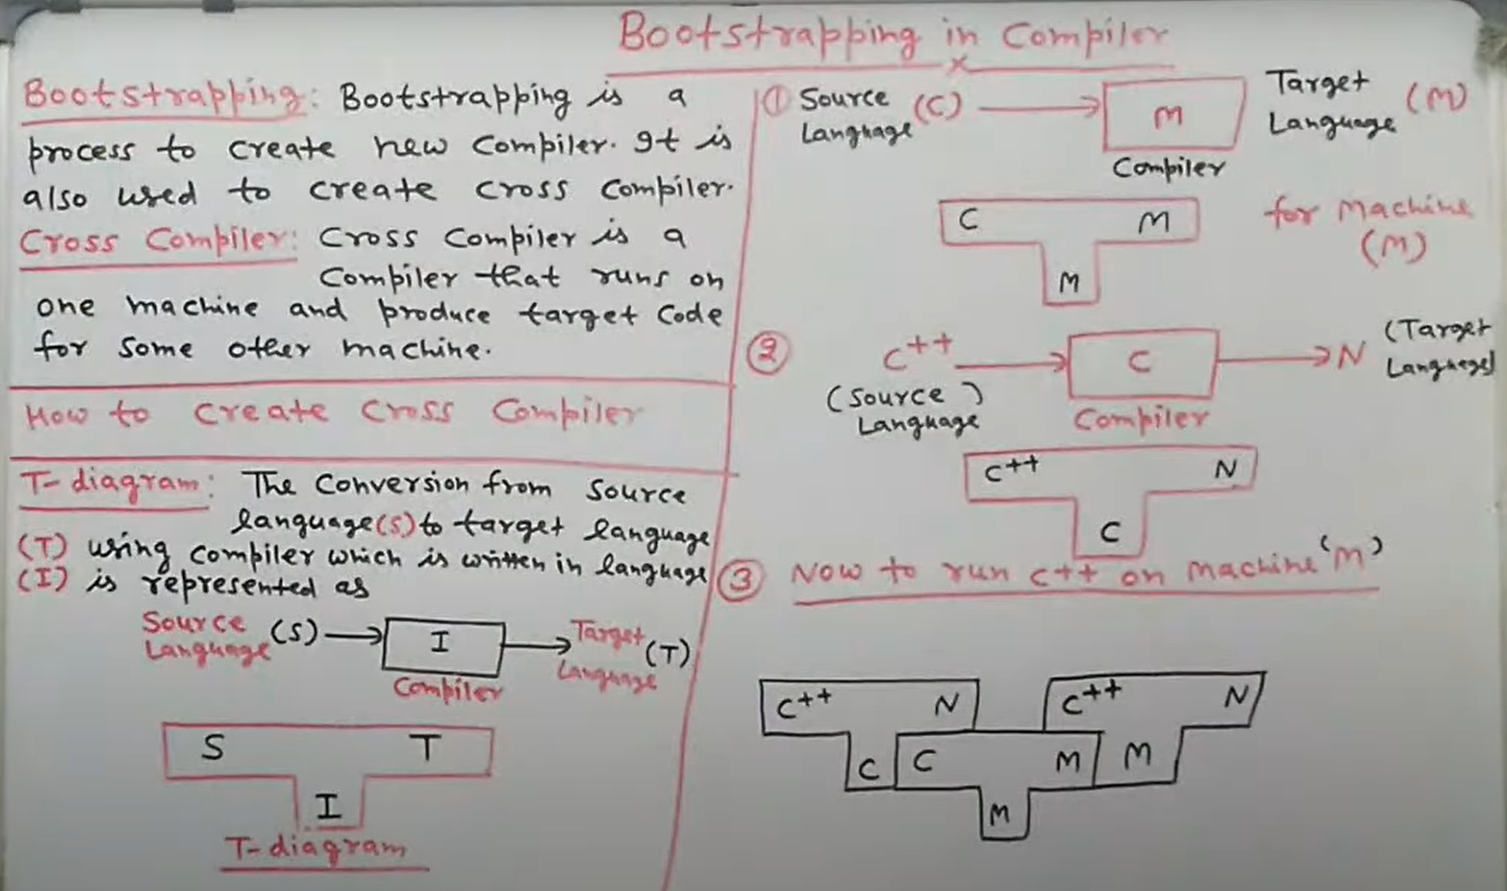 Bootstrapping in Compiler
x
Bootstrapping: Bootstrapping is a
process to create new Compiler. It is
also used to create cross Compiler.
Cross Compiler: Cross Compiler is a
Compiler that runs on
one machine and produce target Code
for some other machine.
How to create cross Compiler
T-diagram: The Conversion from Source
language(S) to target language
(T) using compiler which is written in language
(I) is represented as
Source Language (S) I Target Language (T)
Compiler
S T
I
T-diagram
① Source Language (C) M Target Language (M)
Compiler
C M for Machine (M)
M
② C++ C N (Target Language)
(Source Language) Compiler
C++ N
C
③ Now to run C++ on Machine 'M'
C++ N C++ N
C C M M
M